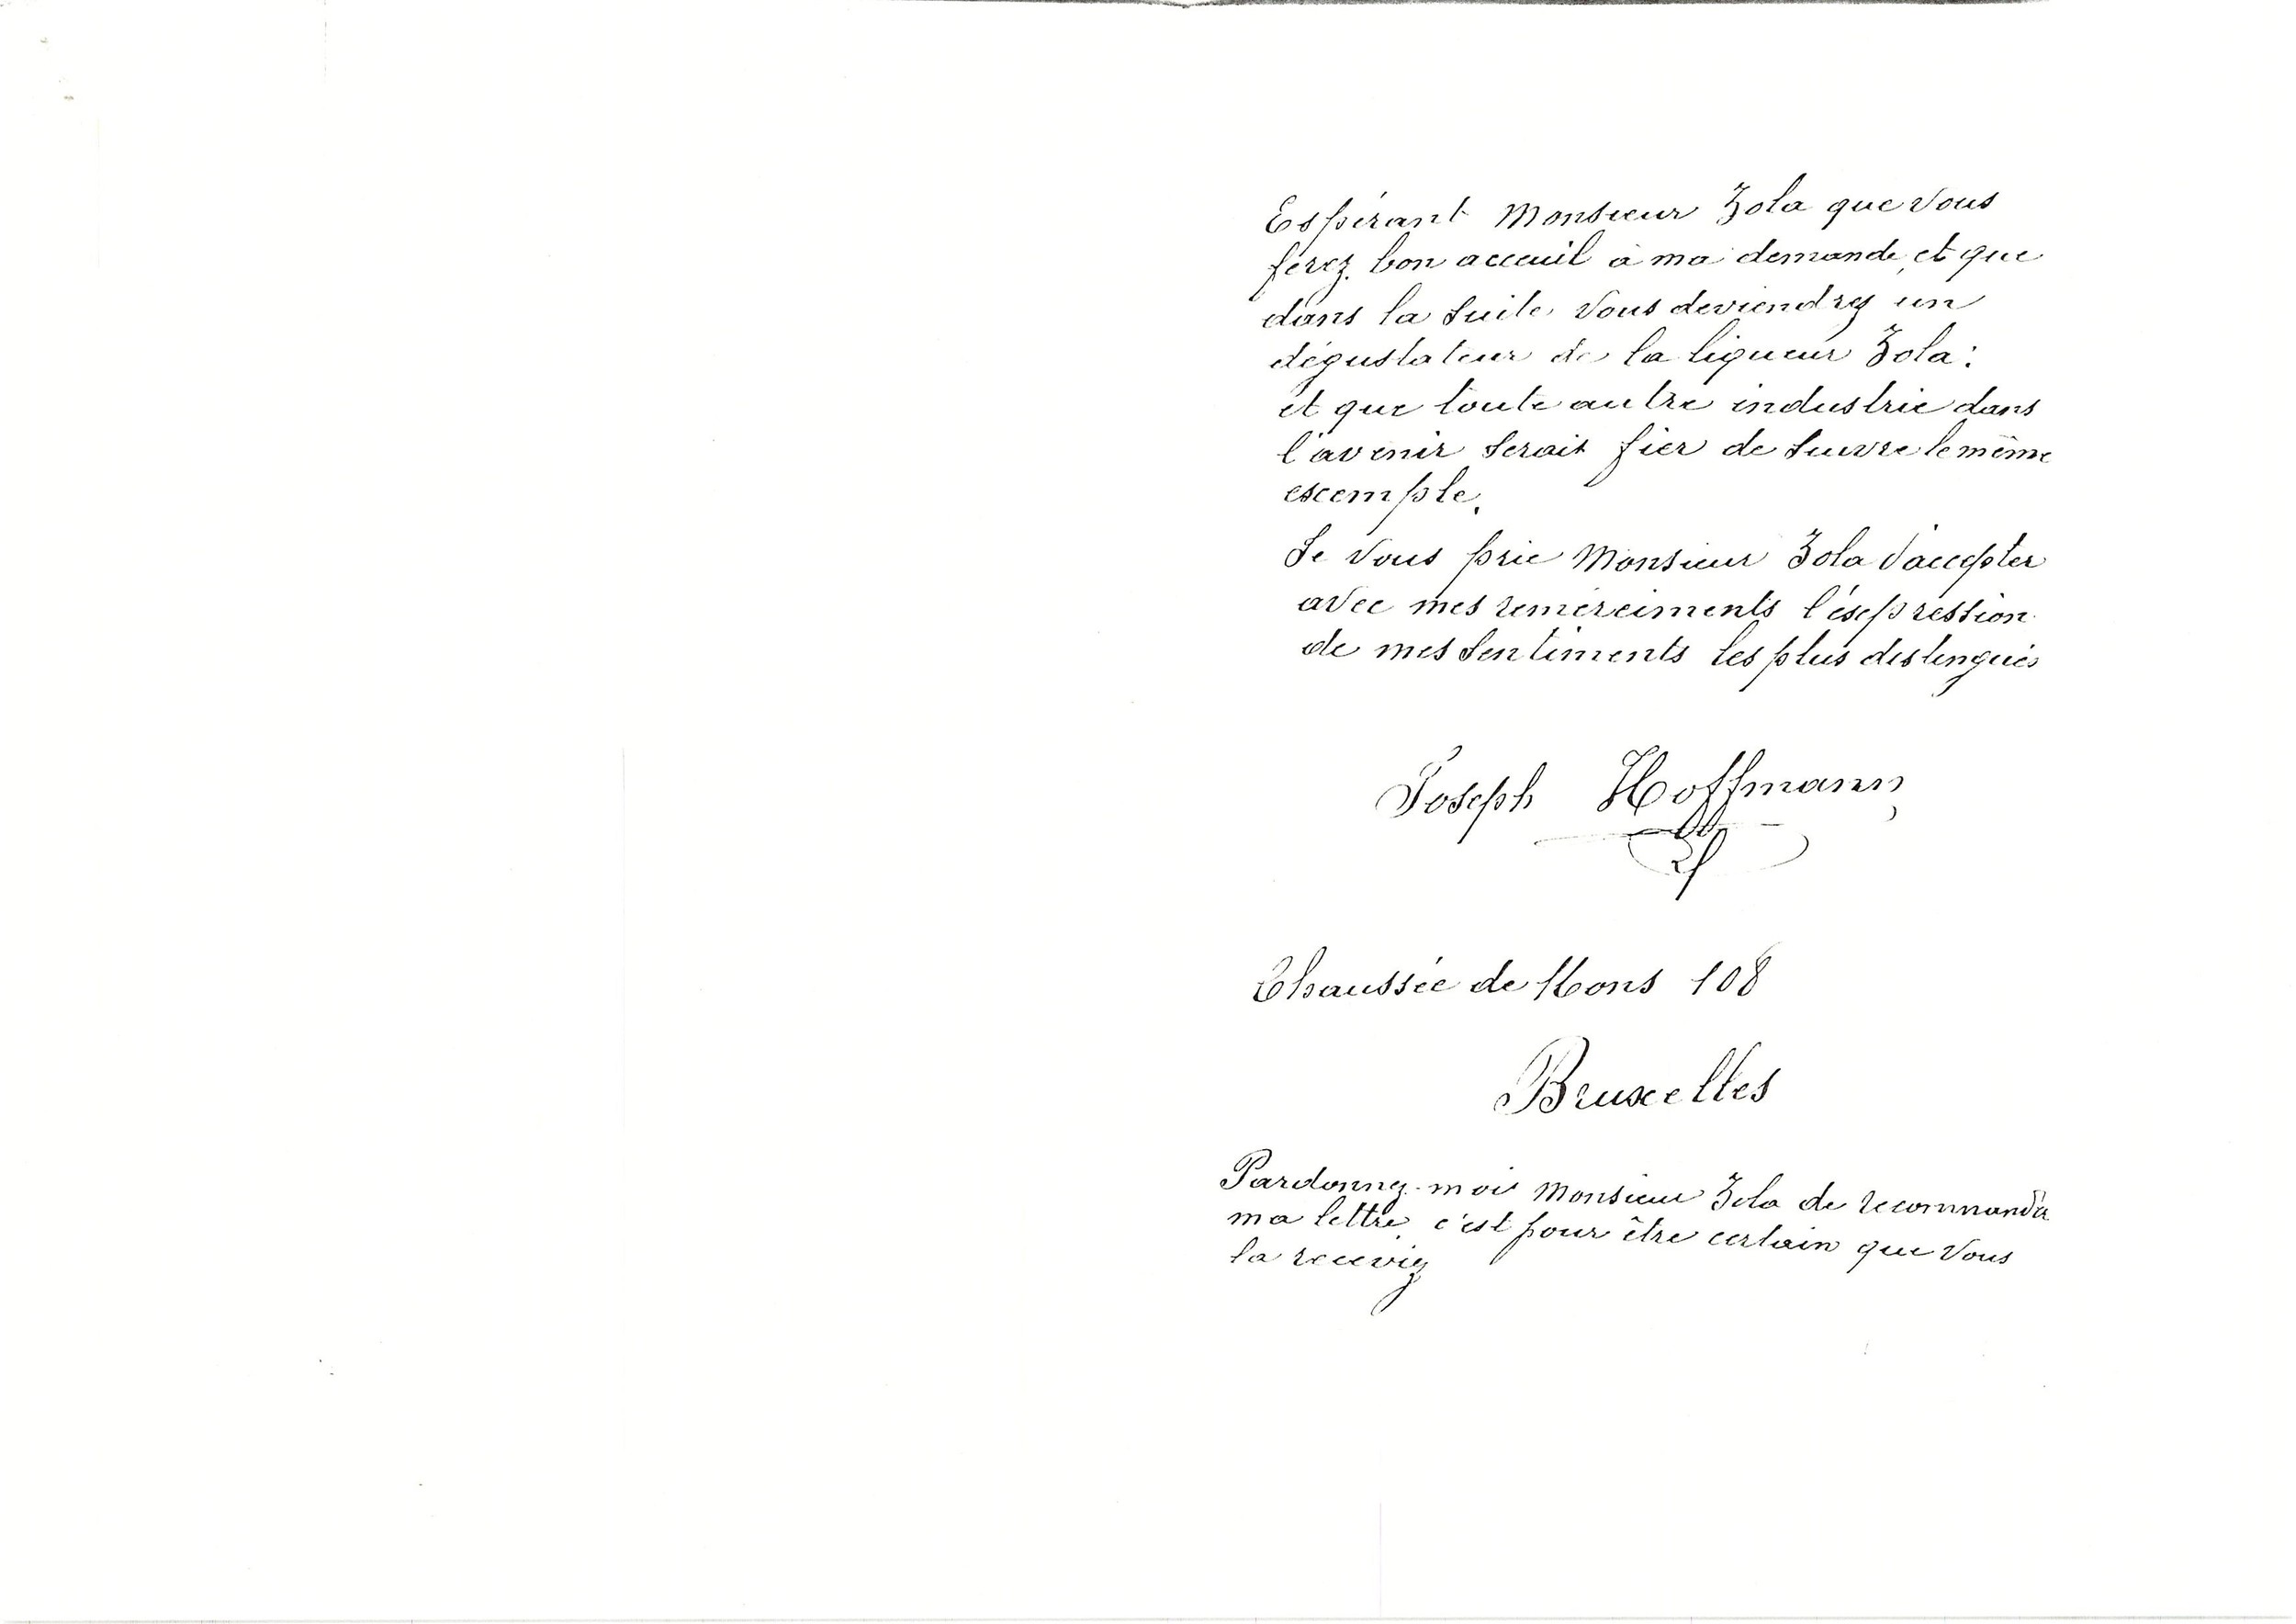 Espérant Monsieur Zola que vous
ferez bon acceuil à ma demande, et que
dans la suite vous deviendrez un
dégustateur de la liqueur Zola:
et que toute autre industrie dans
l'avenir serait fier de suivre le même
exemple.
Je vous prie Monsieur Zola d'accepter
avec mes remerciments l'éxpression
de mes sentiments les plus distingués
Joseph Hoffmann
Chaussée de Mons 108
Bruxelles
Pardonnez-moi Monsieur Zola de recommander
ma lettre, c'est pour être certain que vous
la receviez